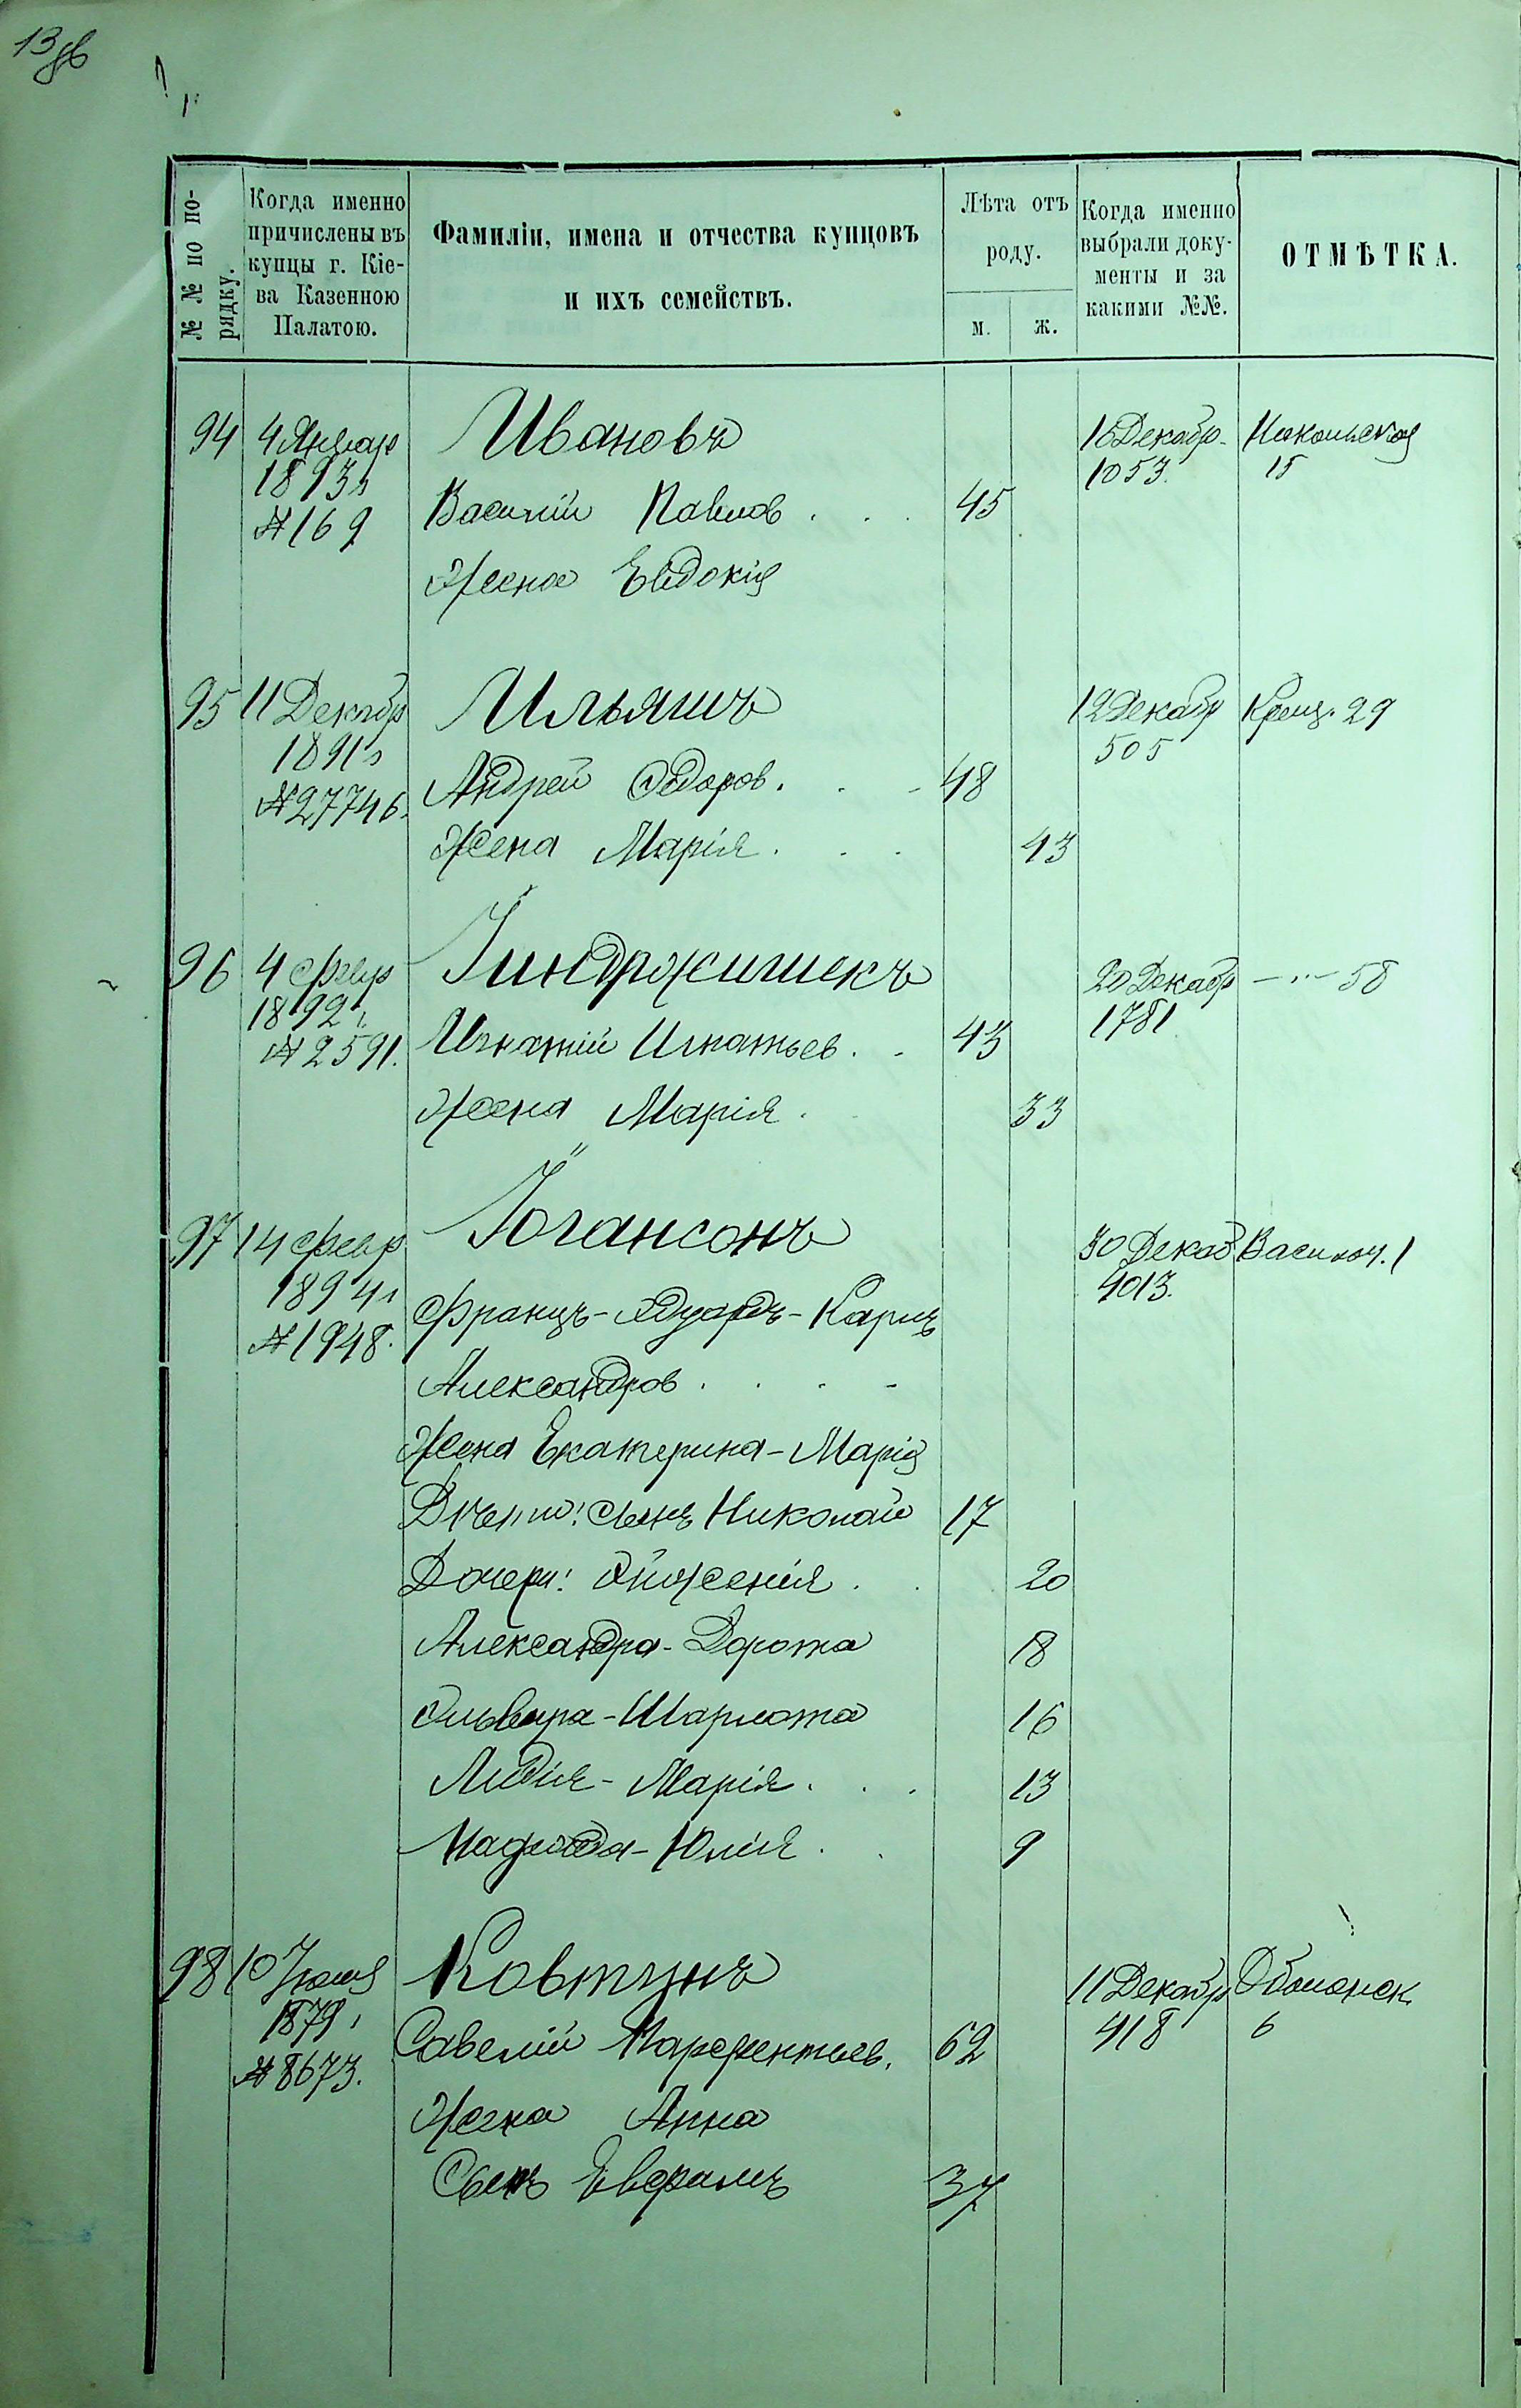 13об
№ № по по-
рядку.
Когда именно
причислены въ
купцы г. Кіе-
ва Казенною
Палатою.
Фамиліи, имена и отчества купцовъ
и ихъ семействъ.
Лѣта отъ
роду.
м.
ж.
Когда именно
выбрали доку-
менты и за
какими №№.
ОТМѢТКА.
94 4 Январ Ивановъ 16 Декабр. Никольская
1893 г 1053. 15
№ 169 Василій Павлов . . . 45
Жена Евдокія
95 11 Декабр Ильяшъ 12 Декабр Крещ. 29
1891 г 505
№ 27746. Андрей Ѳедоров. . . 48
Жена Марія . . . 43
96 4 Февр Іиндржишекъ 20 Декабр — „ — 58
1892 г 1781
№ 2591. Игнатій Игнатьев . . 43
Жена Марія . 33
97 14 Февр Іогансонъ 30 Декаб Васильк. 1
1894 г 4013.
№ 1948. Францъ-Эдуардъ-Карлъ
Александров . . . .
Жена Екатерина-Марія
Дѣти: сынъ Николай 17
Дочери: Эйженія . . 20
Александра-Дорота 18
Эльвира-Шарлота 16
Лидія-Марія . . . 13
Надежда-Юлія . . 9
98 10 Іюля Ковтунъ 11 Декабр Оболонск.
1879 г 418 6
№ 8673. Савелій Парфентьев. 62
Жена Анна
Сынъ Евфрамъ 37